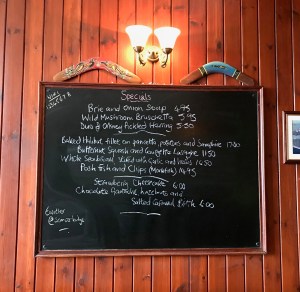 Specials
Brie and Onion Soup 4.75
Wild Mushroom Bruschetta 5.95
Duo of Orkney Pickled Herring 5.50
Baked Halibut fillet on pancetta, potatoes and Samphire 17.00
Butternut Squash and Courgette Lasagne 11.50
Whole Seabream with Garlic and 16.50
Posh Fish and Chips (Monkfish) 14.95
Strawberry Cheesecake 6.00
Chocolate Ganache, hazelnuts and
Salted Caramel 6.00